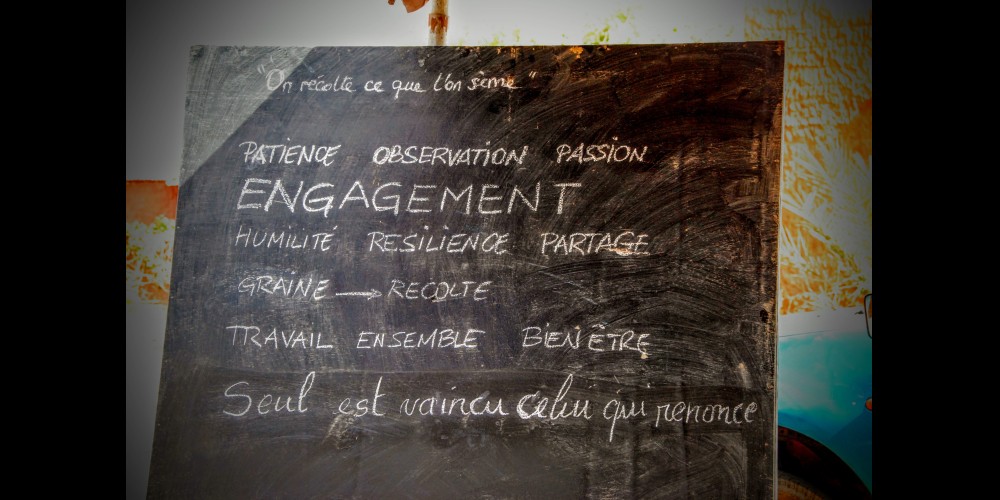 "On récolte ce que l'on sème"
PATIENCE OBSERVATION PASSION
ENGAGEMENT
HUMILITÉ RESILIENCE PARTAGE
GRAINE → RECOLTE
TRAVAIL ENSEMBLE BIEN ÊTRE
Seul est vaincu celui qui renonce